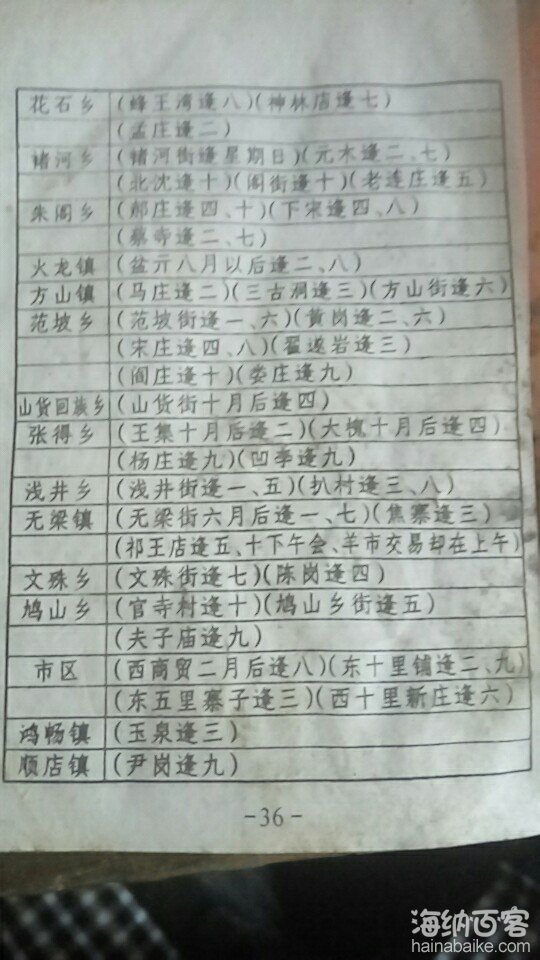 花石乡 (蜂王湾逢八)(神林店逢七)
(孟庄逢二)
褚河乡 (褚河街逢星期日)(元木逢二、七)
(北沈逢十)(阁街逢十)(老连庄逢五)
朱阁乡 (郝庄逢四、十)(下宋逢四、八)
(蔡寺逢二、七)
火龙镇 (盆亓八月以后逢二、八)
方山镇 (马庄逢二)(三古洞逢三)(方山街逢六)
范坡乡 (范坡街逢一、六)(黄岗逢二、六)
(宋庄逢四、八)(翟遂岩逢三)
(阎庄逢十)(娄庄逢九)
山货回族乡 (山货街十月后逢四)
张得乡 (王集十月后逢二)(大槐十月后逢四)
(杨庄逢九)(凹李逢九)
浅井乡 (浅井街逢一、五)(扒村逢三、八)
无梁镇 (无梁街六月后逢一、七)(焦寨逢三)
(祁王店逢五、十下午会、羊市交易却在上午)
文殊乡 (文殊街逢七)(陈岗逢四)
鸠山乡 (官寺村逢十)(鸠山乡街逢五)
(夫子庙逢九)
市区 (西商贸二月后逢八)(东十里铺逢二、九)
(东五里寨子逢三)(西十里新庄逢六)
鸿畅镇 (玉泉逢三)
顺店镇 (尹岗逢九)
-36-
海纳百客
hainabaike.com